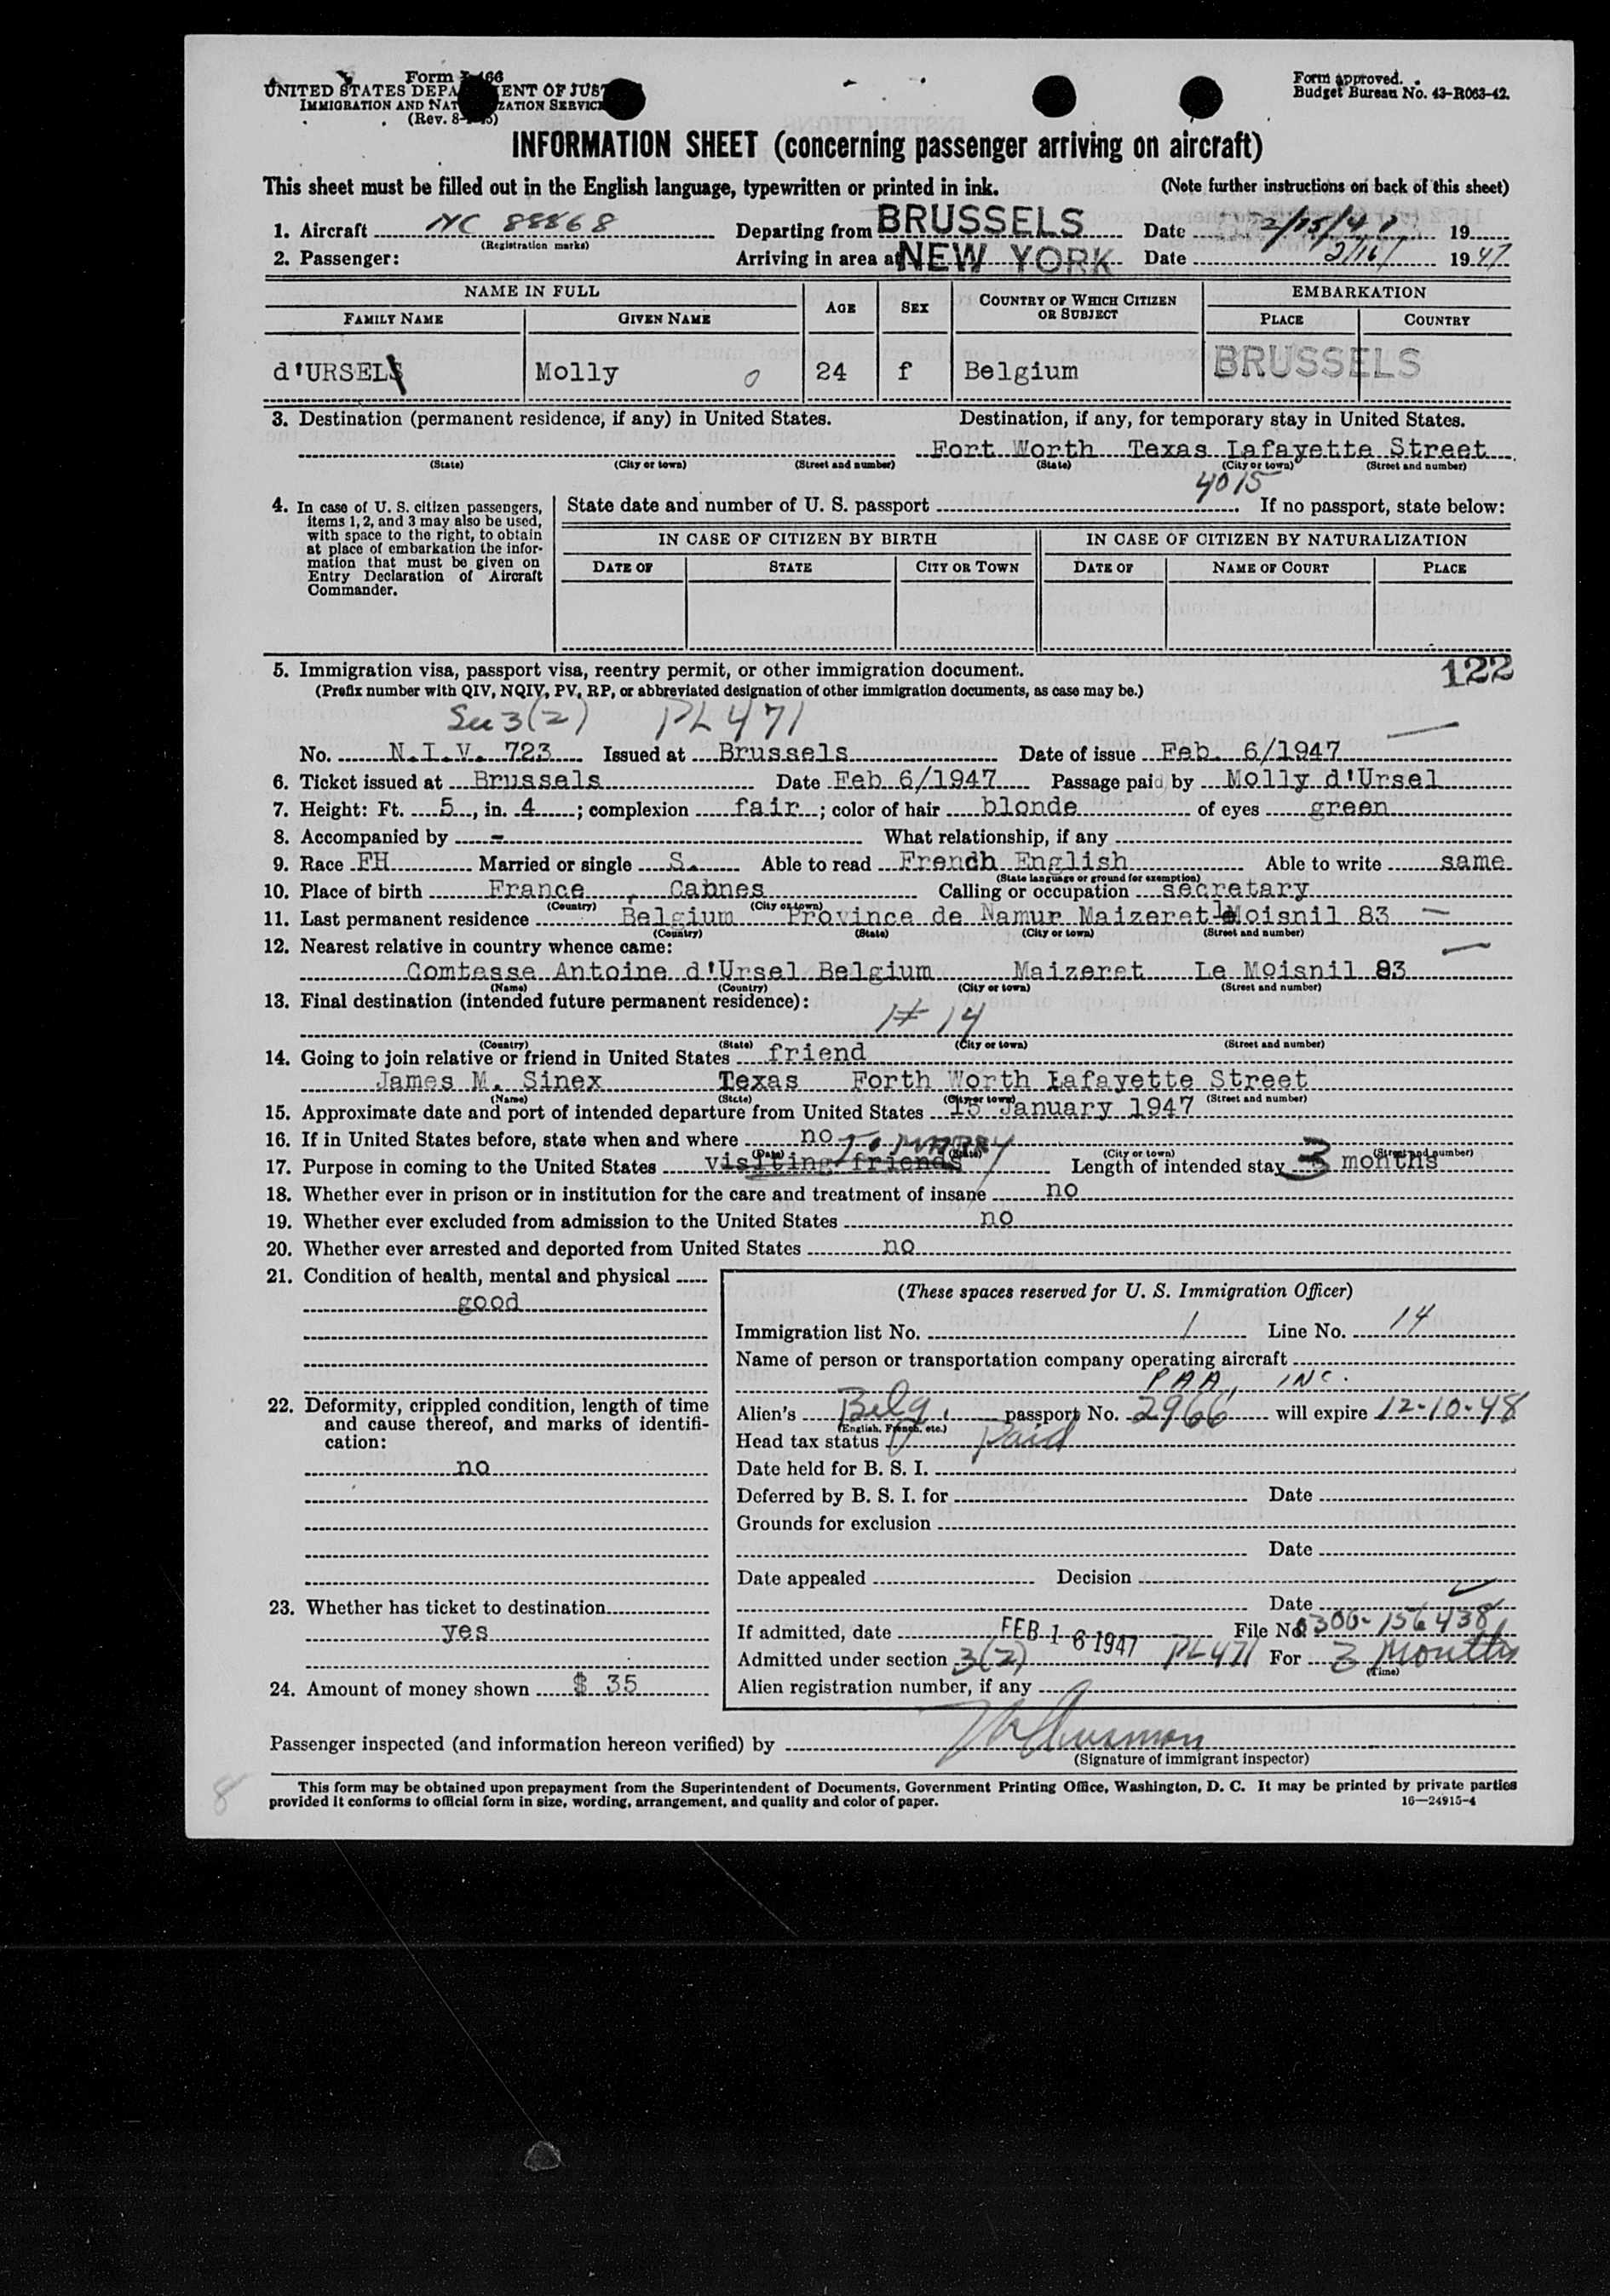 Form I-466
UNITED STATES DEPARTMENT OF JUSTICE
IMMIGRATION AND NATURALIZATION SERVICE
(Rev. 8- )
Form approved.
Budget Bureau No. 43-R063-42.
INFORMATION SHEET (concerning passenger arriving on aircraft)
This sheet must be filled out in the English language, typewritten or printed in ink. (Note further instructions on back of this sheet)
1. Aircraft NC 88868 Departing from BRUSSELS Date 2/15/47 19
(Registration marks)
2. Passenger: Arriving in area at NEW YORK Date 2/16/ 1947
NAME IN FULL AGE SEX COUNTRY OF WHICH CITIZEN OR SUBJECT EMBARKATION
FAMILY NAME GIVEN NAME PLACE COUNTRY
d'URSEL Molly 0 24 f Belgium BRUSSELS
3. Destination (permanent residence, if any) in United States. Destination, if any, for temporary stay in United States.
Fort Worth Texas Lafayette Street
(State) (City or town) (Street and number) (State) (City or town) (Street and number)
4015
4. In case of U. S. citizen passengers, items 1, 2, and 3 may also be used, with space to the right, to obtain at place of embarkation the information that must be given on Entry Declaration of Aircraft Commander.
State date and number of U. S. passport If no passport, state below:
IN CASE OF CITIZEN BY BIRTH IN CASE OF CITIZEN BY NATURALIZATION
DATE OF STATE CITY OR TOWN DATE OF NAME OF COURT PLACE
5. Immigration visa, passport visa, reentry permit, or other immigration document. 122
(Prefix number with QIV, NQIV, PV, RP, or abbreviated designation of other immigration documents, as case may be.)
Sec 3(2) PL 471
No. N.I.V. 723 Issued at Brussels Date of issue Feb. 6/1947
6. Ticket issued at Brussels Date Feb 6/1947 Passage paid by Molly d'Ursel
7. Height: Ft. 5, in. 4; complexion fair; color of hair blonde of eyes green
8. Accompanied by - What relationship, if any
9. Race FH Married or single S. Able to read French English Able to write same
(State language or ground for exemption)
10. Place of birth France, Cannes Calling or occupation secretary
(Country) (City or town)
11. Last permanent residence Belgium Province de Namur Maizeret le Moisnil 83
(Country) (State) (City or town) (Street and number)
12. Nearest relative in country whence came:
Comtesse Antoine d'Ursel Belgium Maizeret Le Moisnil 83
(Name) (Country) (City or town) (Street and number)
13. Final destination (intended future permanent residence):
1# 14
(Country) (State) (City or town) (Street and number)
14. Going to join relative or friend in United States friend
James M. Sinex Texas Forth Worth Lafayette Street
(Name) (State) (City or town) (Street and number)
15. Approximate date and port of intended departure from United States 15 January 1947
16. If in United States before, state when and where no
(Date) (State) (City or town) (Street and number)
TO MARRY
17. Purpose in coming to the United States visiting friends Length of intended stay 3 months
18. Whether ever in prison or in institution for the care and treatment of insane no
19. Whether ever excluded from admission to the United States no
20. Whether ever arrested and deported from United States no
21. Condition of health, mental and physical
good
22. Deformity, crippled condition, length of time and cause thereof, and marks of identification:
no
23. Whether has ticket to destination
yes
24. Amount of money shown $ 35
(These spaces reserved for U. S. Immigration Officer)
Immigration list No. 1 Line No. 14
Name of person or transportation company operating aircraft
PAA, INC.
Alien's Belg. passport No. 2966 will expire 12-10-48
(English, French, etc.)
Head tax status Paid
Date held for B. S. I.
Deferred by B. S. I. for Date
Grounds for exclusion
Date
Date appealed Decision
Date
If admitted, date FEB 16 1947 File No. 0300-156438
Admitted under section 3(2) PL471 For 3 Months
(Time)
Alien registration number, if any
Passenger inspected (and information hereon verified) by
(Signature of immigrant inspector)
This form may be obtained upon prepayment from the Superintendent of Documents, Government Printing Office, Washington, D. C. It may be printed by private parties
provided it conforms to official form in size, wording, arrangement, and quality and color of paper.
16—24915-4
8